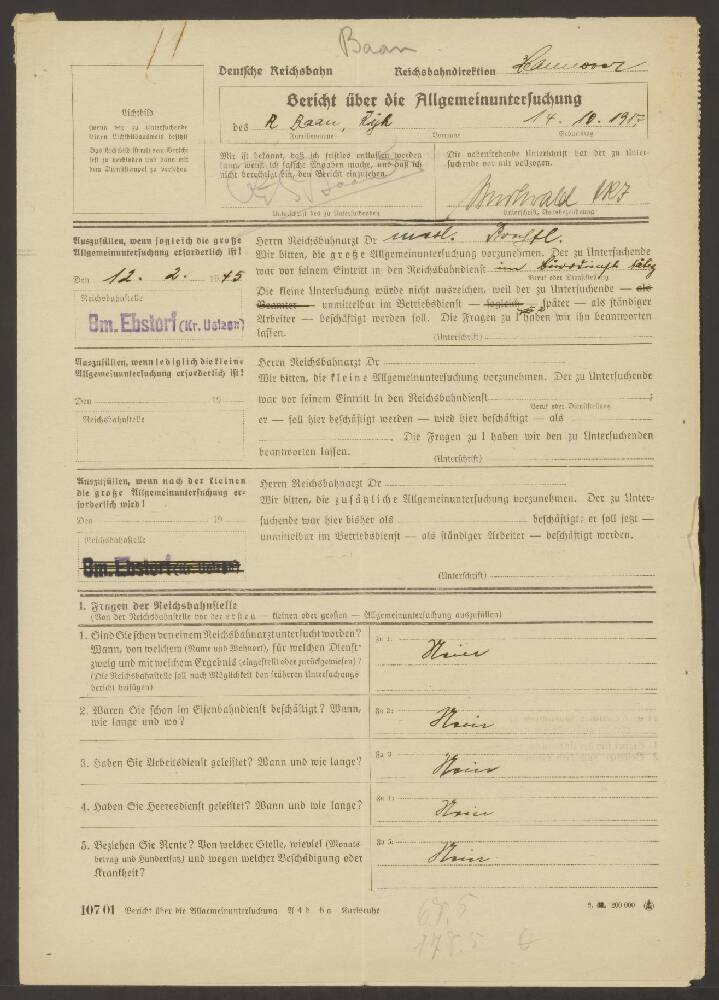 Baan
Deutsche Reichsbahn Reichsbahndirektion Hannover
Bericht über die Allgemeinuntersuchung
des R Baan, 14. 10. 19
Familienname Vorname Geburtstag
Lichtbild
(wenn der zu Untersuchende
einen Lichtbildausweis besitzt
Das Lichtbild ist mit dem Bericht
fest zu verbinden und dann mit
dem Dienststempel zu versehen
Mir ist bekannt, daß ich fristlos entlassen werden
kann, wenn ich falsche Angaben mache, und daß ich
nicht berechtigt bin, den Bericht einzusehen.
Unterschrift des zu Untersuchenden
Die nebenstehende Unterschrift hat der zu Unter-
suchende vor mir vollzogen.
Unterschrift, Amtsbezeichnung
Auszufüllen, wenn sogleich die große
Allgemeinuntersuchung erforderlich ist!
Den 12. 2. 1945
Reichsbahnstelle
Bm. Ebstorf (Kr. Uelzen)
Herrn Reichsbahnarzt Dr med.
Wir bitten, die große Allgemeinuntersuchung vorzunehmen. Der zu Untersuchende
war vor seinem Eintritt in den Reichsbahndienst im Bürodienst tätig
Beruf oder Dienststellung
Die kleine Untersuchung würde nicht ausreichen, weil der zu Untersuchende — als
Beamter — unmittelbar im Betriebsdienst — sogleich — später — als ständiger
Arbeiter — beschäftigt werden soll. Die Fragen zu I haben wir ihn beantworten
lassen.
(Unterschrift)
Auszufüllen, wenn lediglich die kleine
Allgemeinuntersuchung erforderlich ist!
Den 19
Reichsbahnstelle
Herrn Reichsbahnarzt Dr
Wir bitten, die kleine Allgemeinuntersuchung vorzunehmen. Der zu Untersuchende
war vor seinem Eintritt in den Reichsbahndienst ;
Beruf oder Dienststellung
er — soll hier beschäftigt werden — wird hier beschäftigt — als
. Die Fragen zu I haben wir den zu Untersuchenden
beantworten lassen.
(Unterschrift)
Auszufüllen, wenn nach der kleinen
die große Allgemeinuntersuchung er-
forderlich wird!
Den 19
Reichsbahnstelle
Bm. Ebstorf (Kr. Uelzen)
Herrn Reichsbahnarzt Dr
Wir bitten, die zusätzliche Allgemeinuntersuchung vorzunehmen. Der zu Unter-
suchende war hier bisher als beschäftigt; er soll jetzt —
unmittelbar im Betriebsdienst — als ständiger Arbeiter — beschäftigt werden.
(Unterschrift)
I. Fragen der Reichsbahnstelle
(Von der Reichsbahnstelle vor der ersten — kleinen oder großen — Allgemeinuntersuchung auszufüllen)
1. Sind Sie schon von einem Reichsbahnarzt untersucht worden?
Wann, von welchem (Name und Wohnort), für welchen Dienst-
zweig und mit welchem Ergebnis (eingestellt oder zurückgewiesen)?
(Die Reichsbahnstelle soll nach Möglichkeit den früheren Untersuchungs
bericht beifügen)
Zu 1:
Nein
2. Waren Sie schon im Eisenbahndienst beschäftigt? Wann,
wie lange und wo?
Zu 2:
Nein
3. Haben Sie Arbeitsdienst geleistet? Wann und wie lange?
Zu 3
Nein
4. Haben Sie Heeresdienst geleistet? Wann und wie lange?
Zu 4:
Nein
5. Beziehen Sie Rente? Von welcher Stelle, wieviel (Monats
betrag und Hundertsatz) und wegen welcher Beschädigung oder
Krankheit?
Zu 5:
Nein
107 01 Bericht über die Allgemeinuntersuchung A 4 b Karlsruhe 200 000
67.5
178.5